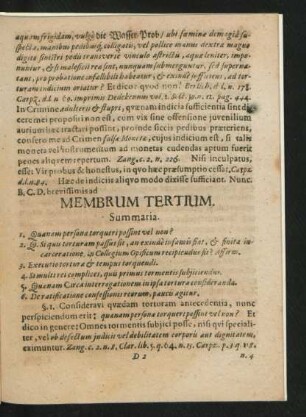 aquam frigidam, vulgò die Wasser Prob / ubi fœminæ dem gleich
suspectæ, manibus pedibusq; colligatis, vel pollice manus dextræ magno
digito sinistri pedis transversè vinculo astricti, aquæ leniter, impo-
nuntur, & si maleficii rea sunt, nunquam submerguntur, sed supernatant,
pro probatione infallibili habeatur, & exinde sufficiens, ad tor-
turam indicium oriatur? Et dicor quod non?
In Crimine adulterii & stupri, quænam indicia sufficientia sint
cere mei propositi non est, cum vix sine offensione juvenilium
aurium hæc tractari possint, proinde siccis pedibus præteriens,
confero me ad Crimen falsæ Monetæ, cujus indicium est, si talis
moneta vel instrumentum ad monetas cudendas aptum fuerit
penes aliquem repertum. Zang. c. 2. n. 226. Nisi inculpatus,
esset Vir probus & honestus, in quo hæc præsumptio cessat, Carpz.
d. l. n. 84. Hæc de indiciis aliquo modo dixisse sufficiat. Nunc.
B. C. D. brevissimis ad
MEMBRUM TERTIUM.
Summaria.
1. Quænam persona torqueri possint vel non?
2. Qu. Si quis torturam passus sit, an exinde infamis fiat, & finita in-
carceratione, in Collegium Opificum recipiendus sit? Affirm.
3. Executio torturæ & tempus torquendi.
4. Si multi rei complices, quis primus tormentis subjiciendus.
5. Quænam Circa interrogationem in ipsa tortura consideranda.
6. De ratificatione confessionis reorum, paucis agitur.
§. 1. Consideravi quædam torturam antecedentia, nunc
perspiciendum erit: quænam persona torqueri possint vel non? Et
dico in genere: Omnes tormentis subjici posse, nisi qui speciali-
ter, vel ob defectum judicii vel debilitatem corporis aut dignitatem,
eximuntur. Zang. c. 2. n. 8. Clar. lib. 5. q. 64. n. 15. Carpz.
D 2 n. 4